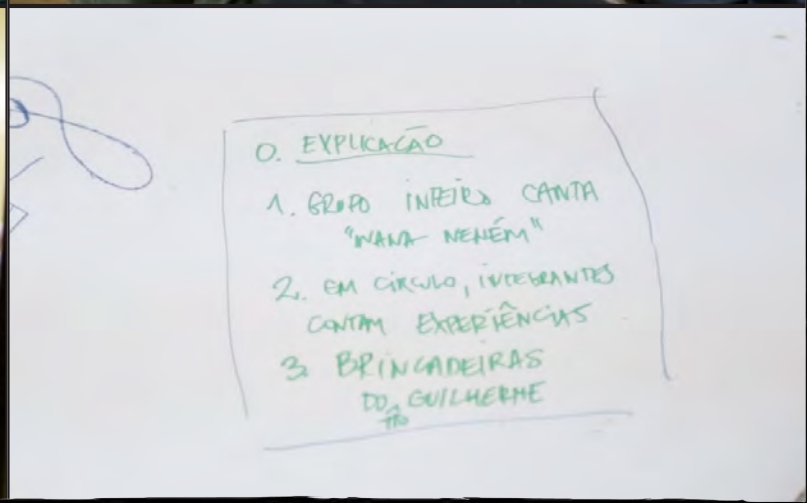 0. EXPLICAÇÃO
1. GRUPO INTEIRO CANTA
"NANA NENÉM"
2. EM CÍRCULO, INTEGRANTES
CONTAM EXPERIÊNCIAS
3. BRINCADEIRAS
DO GUILHERME
TIO